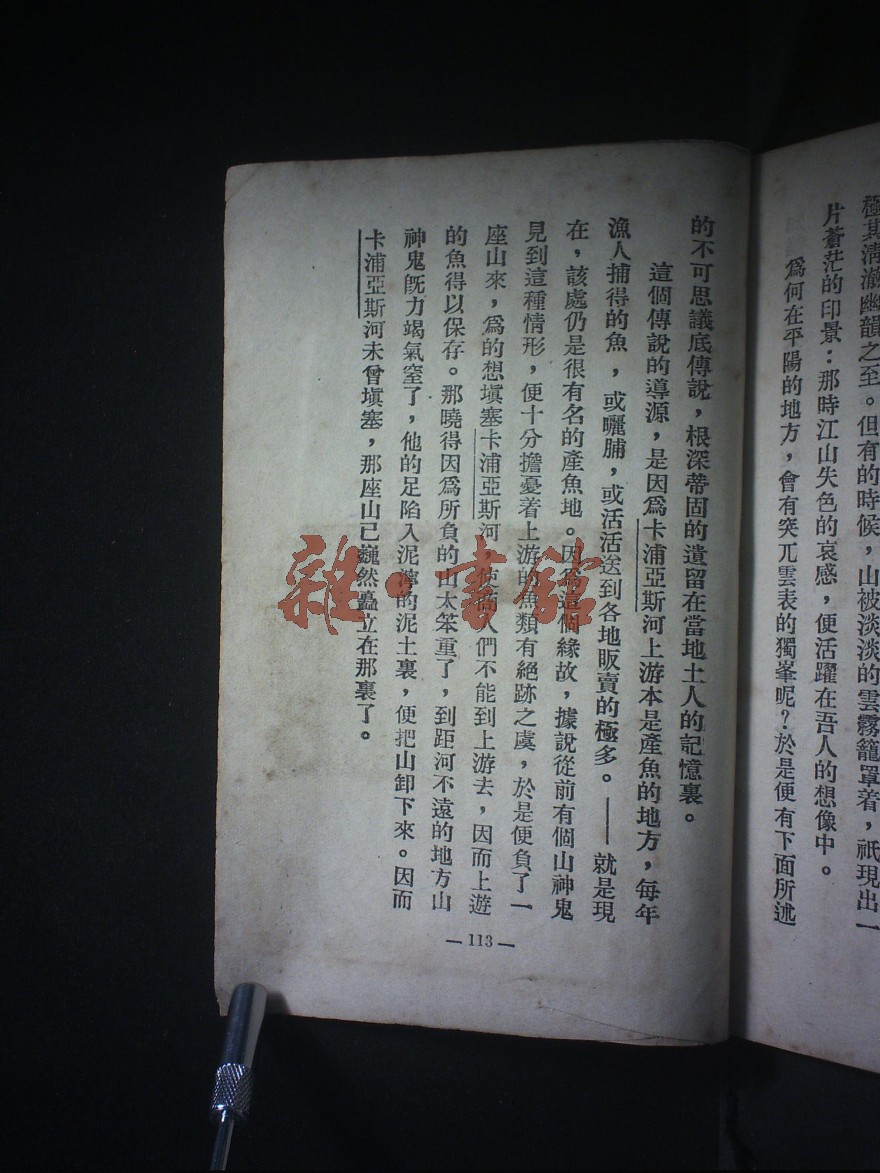 極其清澈幽韻之至。但有的時候，山被淡淡的雲霧籠罩着，祇現出一
片蒼茫的印景：那時江山失色的哀感，便活躍在吾人的想像中。
爲何在平陽的地方，會有突兀雲表的獨峯呢？於是便有下面所述
的不可思議底傳說，根深蒂固的遺留在當地土人的記憶裏。
這個傳說的導源，是因爲卡浦亞斯河上游本是產魚的地方，每年
漁人捕得的魚，或曬脯，或活活送到各地販賣的極多。——就是現
在，該處仍是很有名的產魚地。因爲這個緣故，據說從前有個山神鬼
見到這種情形，便十分擔憂着上游的魚類有絕跡之虞，於是便負了一
座山來，爲的想塡塞卡浦亞斯河，使商人們不能到上游去，因而上遊
的魚得以保存。那曉得因爲所負的山太笨重了，到距河不遠的地方山
神鬼旣力竭氣窒了，他的足陷入泥濘的泥土裏，便把山卸下來。因而
卡浦亞斯河未曾塡塞，那座山已巍然矗立在那裏了。
— 113 —
雜·書館